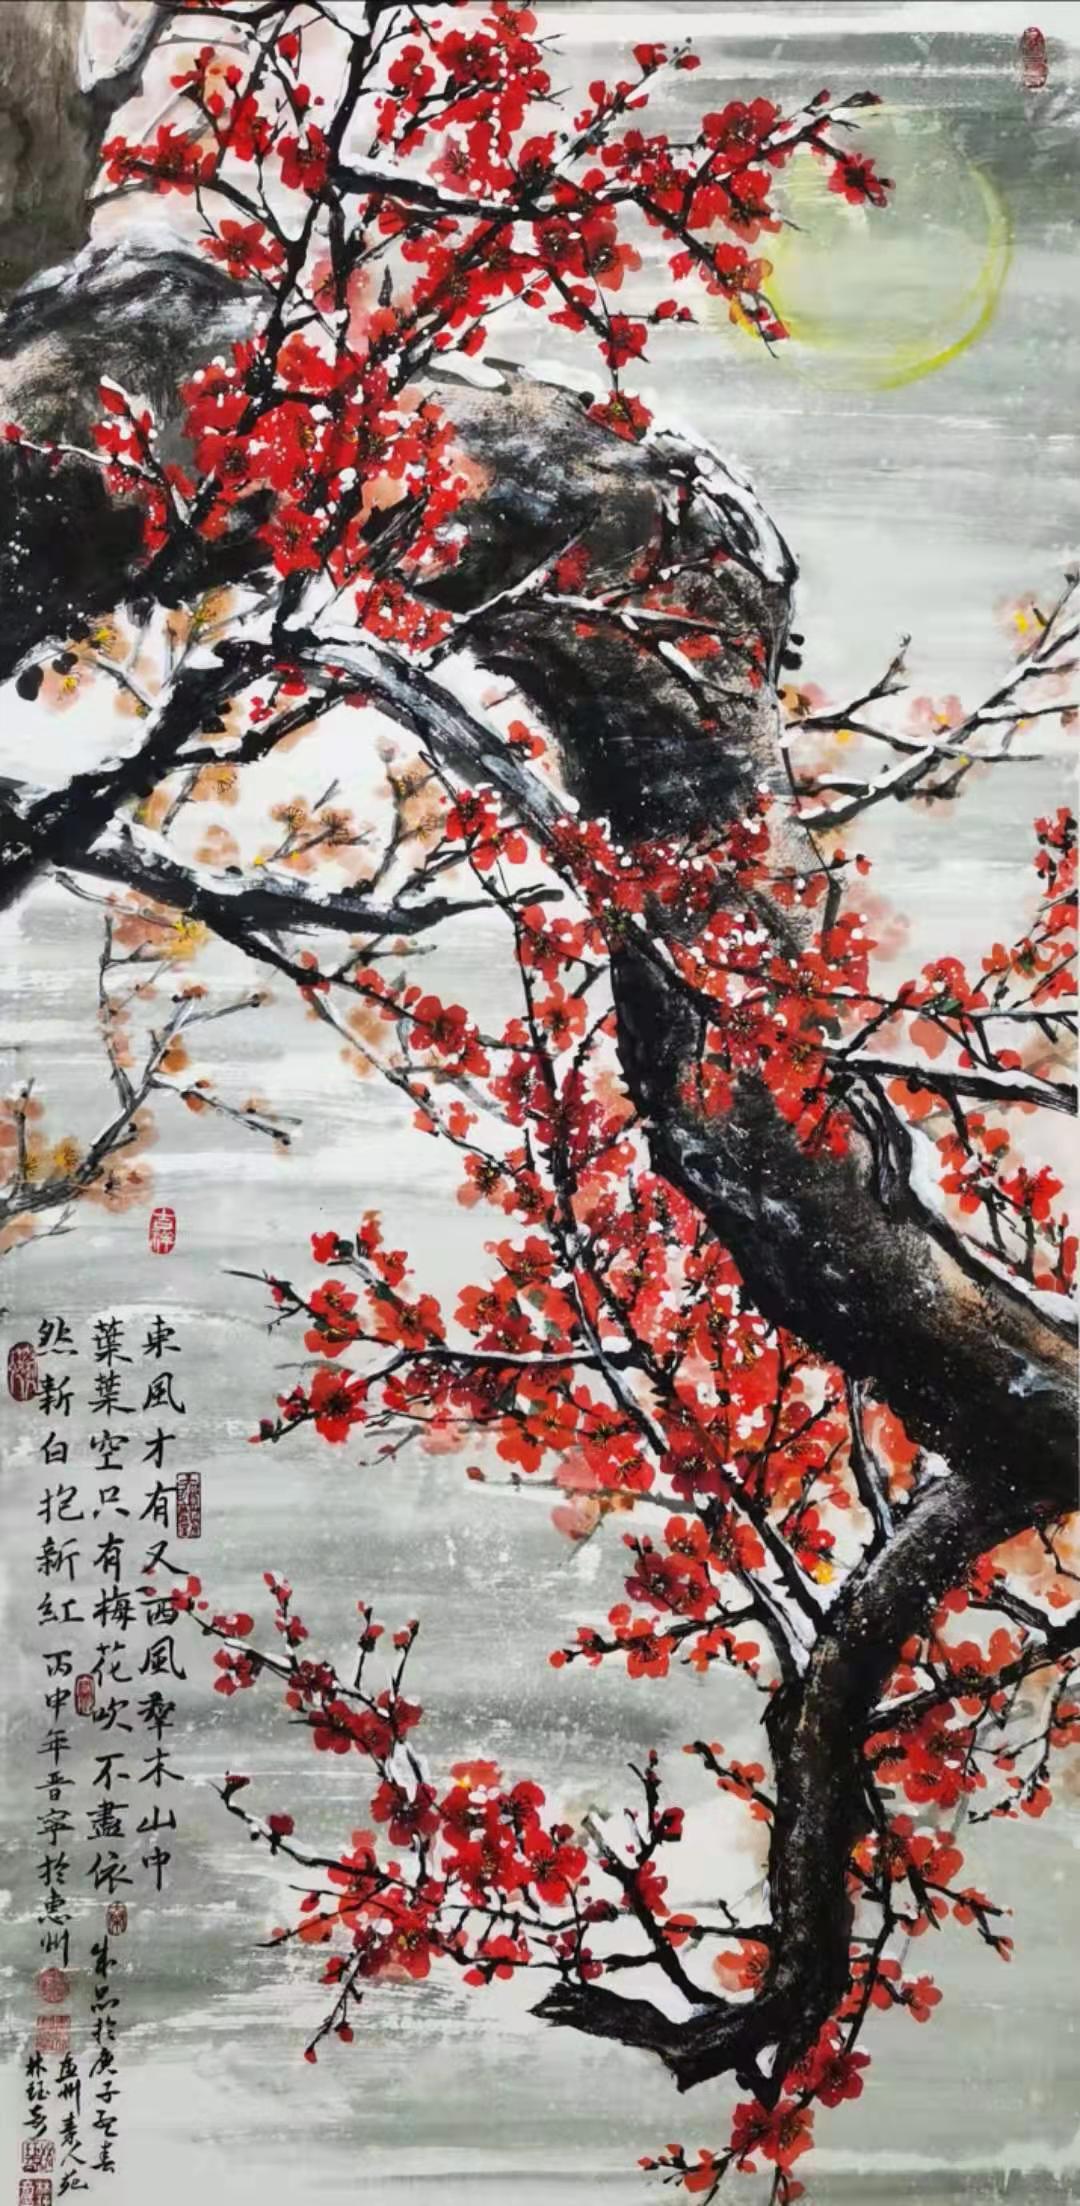 東風才有又西風羣木山中
葉葉空只有梅花吹不盡依
然新白抱新紅丙申年晋寧於惠州
朱品於庚子孟春
惠州素人苑
林钰
吉祥